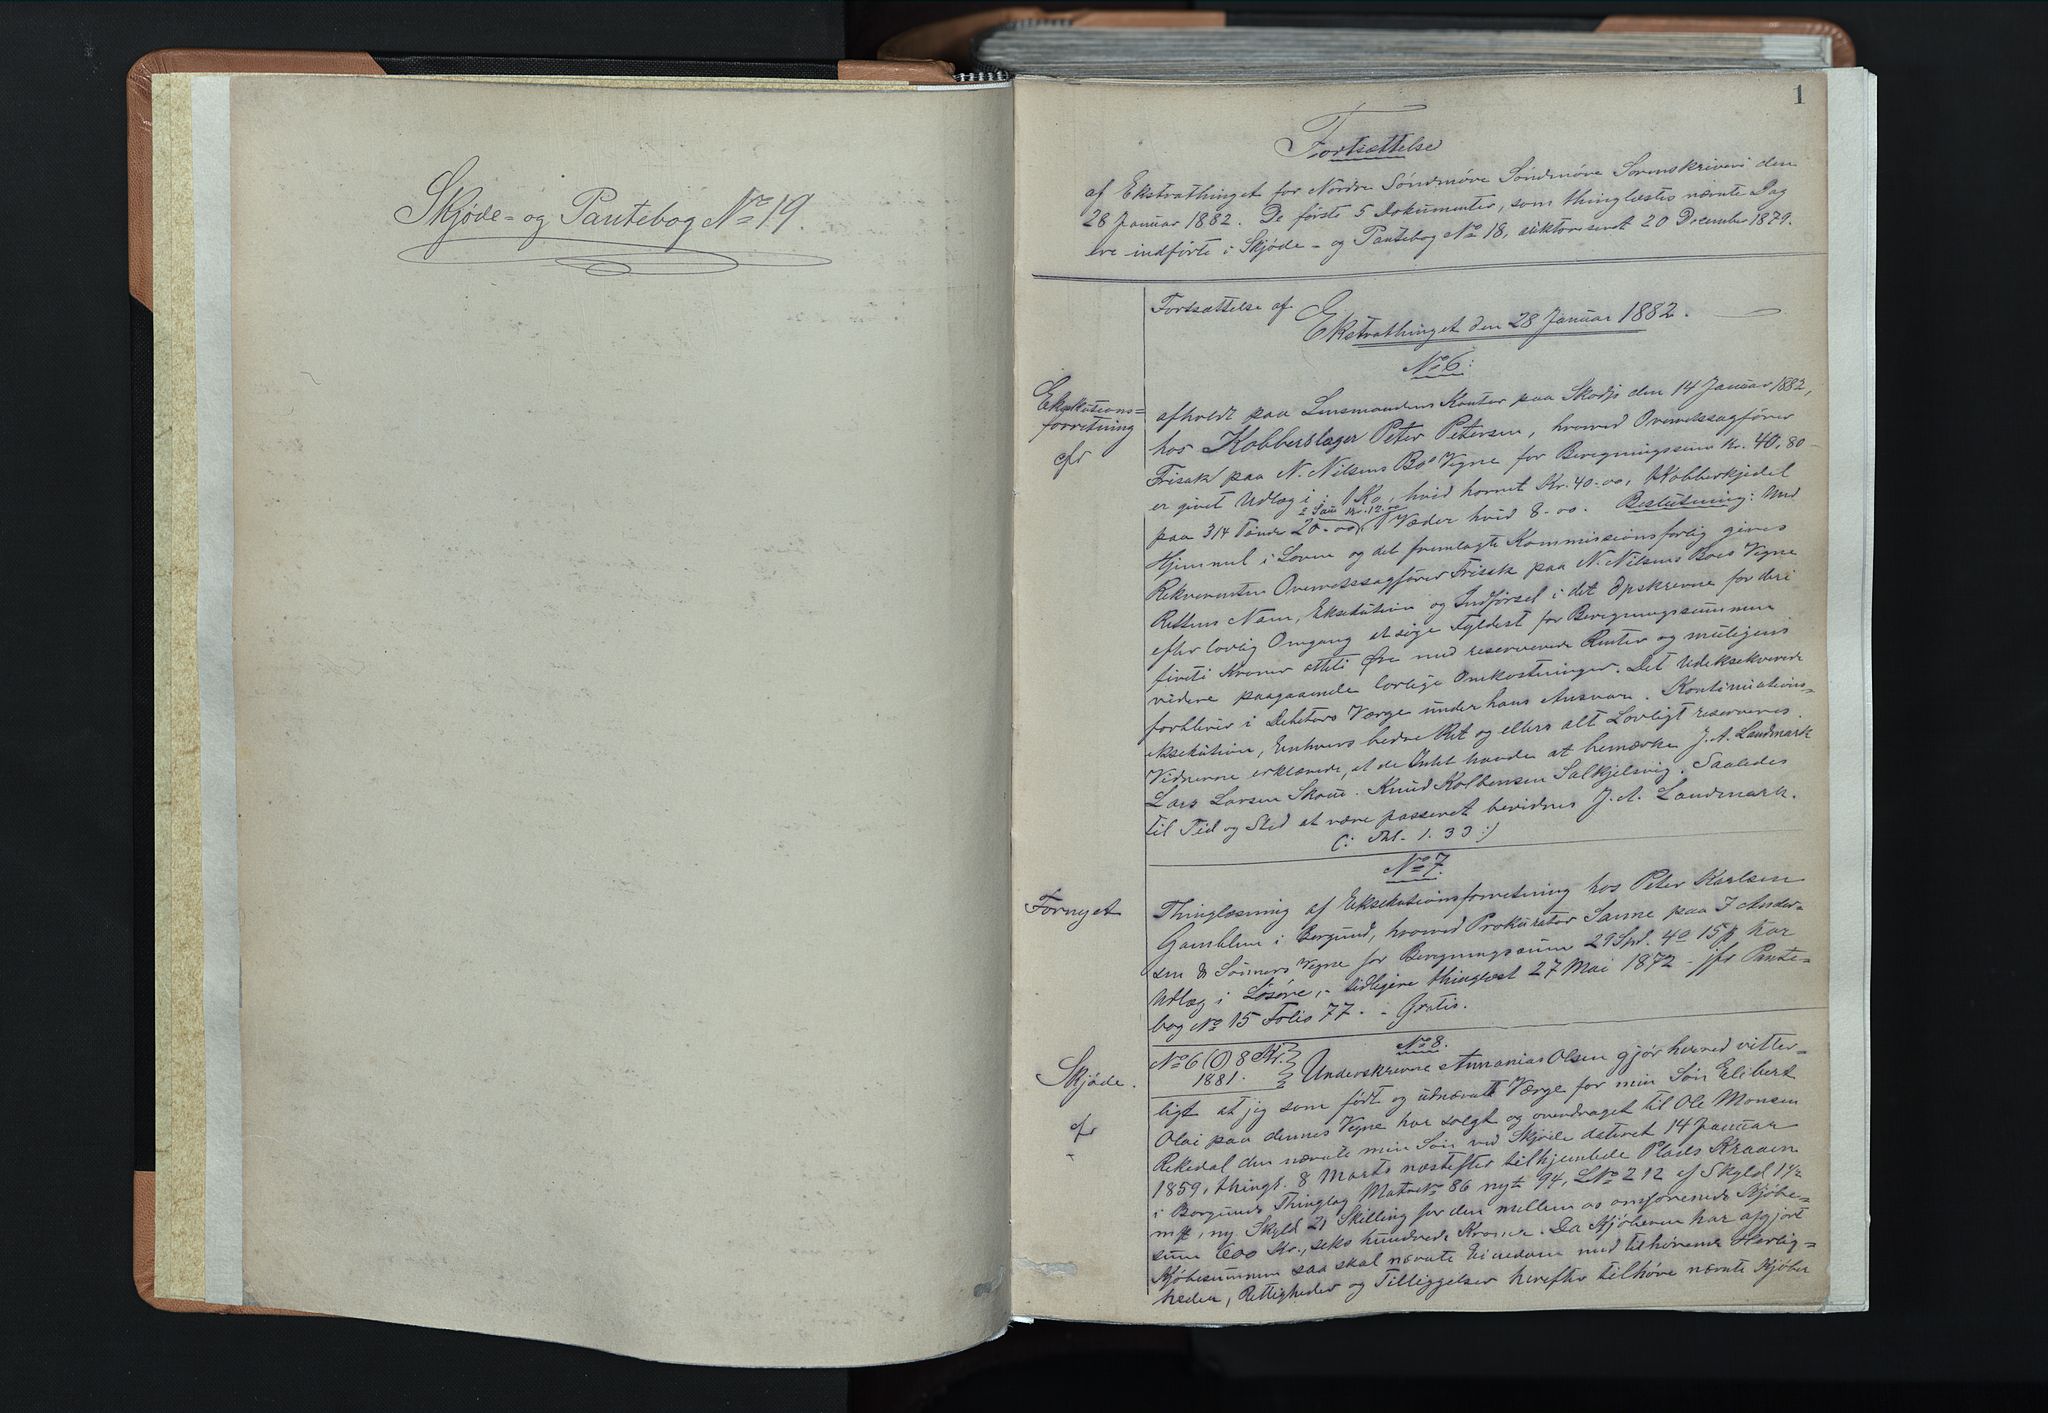 Skjøde- og Pantebog No 19.
1
Fortsættelse
af Ekstrathinget for Nordre Søndmøre Sorenskriveri den
28 Januar 1882. De første 5 Dokumenter, som thinglæstes nævnte Dag
ere indførte i Skjøde- og Pantebog No 18, auktoriseret 20 December 1879.
Fortsættelse af
Ekstrathinget den 28 Januar 1882.
No 6.
Eksekutions-
forretning
cfr
afholdt paa Lensmandens Kontor paa Skodje den 14 Januar 1882,
hos Kobberslager Peter Petersen, hvorved Overretssagfører
Frisak paa N. Nilsens Bo's Vegne for Beregningssum Kr. 40,80
er givet Udlæg i: 1 Ko, hvid hornet Kr. 40-00, 1 Kobberkjedel
2 Sau Kr. 12.00
paa 3/4 Tønde 20-00, 1 Væder hvid 8-00. Beslutning: Med
Hjemmel i Loven og det fremlagte Kommissionsforlig gives
Rekvirenten Overretssagfører Frisak paa N. Nilsens Boes Vegne
Rettens Navn, Eksekution og Indførsel i det Opskrevne for deri
efter lovlig Omgang at søge Fyldest for Beregningssummen
firti Kroner otti Øre med reserverede Renter og muligens
videre paagaaende lovlige Omkostninger. Det Udeksekverede
forbliver i Debitors Værge under hans Ansvar. Kontinuations-
eksekution, Enhvers bedre Ret og ellers alt Lovligt reserveres.
Vidnerne erklærede, at de Intet havde at bemærke J. A. Landmark
Lars Larsen Skoue. Knud Kolbensen Salkjelsvig. Saaledes
til Tid og Sted at være passeret bevidnes J. A. Landmark.
(: Thl. 1. 33 :)
No 7.
Fornyet
Thinglæsning af Eksekutionsforretning hos Peter Karlsen
Gamblem i Borgund, hvorved Prokurator Sanne paa J Ander-
sen & Sønners Vegne for Beregningssum 29 Spd. 4 15 har
Udlæg i Løsøre, - tidligere thinglæst 27 Mai 1872 - jfr Pante-
bog No 15 Folio 77. - Gratis.
No 8.
Skjøde.
cfr
No 6 (O) 8 Kr.
1881.
Underskrevne Annanias Olsen gjør herved vitter-
ligt at jeg som født og udnævnt Værge for min Søn Elibert
Olai paa dennes Vegne har solgt og overdraget til Ole Monsen
Rekedal den nævnte min Søn ved Skjøde dateret 14 Januar
1859, thingl. 8 Marts næstefter tilhjemlede Plads Kraaen
i Borgunds Thinglag Matr No 86 nyt 94, L No 212 af Skyld 1 1/2
mk, ny Skyld 21 Skilling for den mellem os omforenede Kjøbe-
sum 600 Kr., seks hundrede Kroner. Da Kjøberen har afgjort
Kjøbesummen saa skal nævnte Eiendom med tilhørende Herlig-
heder, Rettigheder og Tilliggelser herefter tilhøre nævnte Kjøber